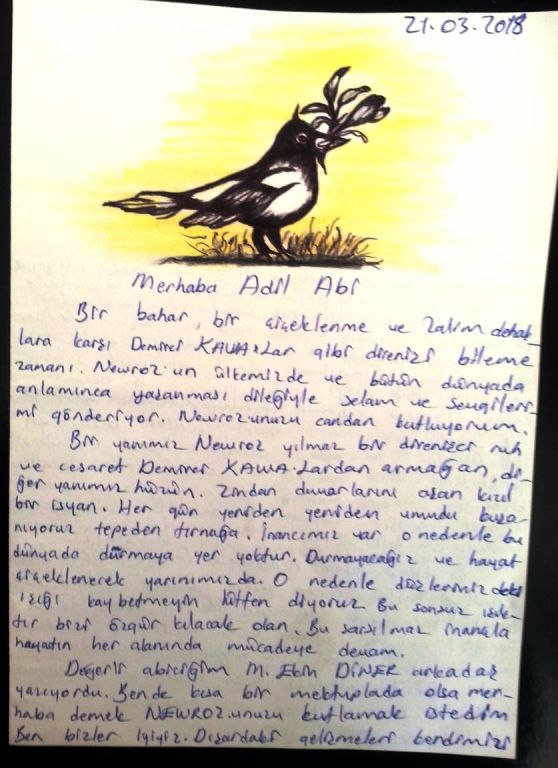 21.03.2018
Merhaba Adil Abi
Bir bahar, bir çiçeklenme ve zalim dehak-
lara karşı Demirci KAWA'Lar gibi direnişi bileme
zamanı. Newroz'un ülkemizde ve bütün dünyada
anlamınca yaşanması dileğiyle selam ve sevgileri-
mi gönderiyor. Newrozunuzu candan kutluyorum.
Bir yanımız Newroz yılmaz bir direnişci ruh
ve cesaret Demirci KAWA'Lardan armağan, di-
ğer yanımız hüzün. Zindan duvarlarını aşan kızıl
bir isyan. Her gün yeniden yeniden umudu kuşa-
nıyoruz tepeden tırnağa. İnancımız var o nedenle bu
dünyada durmaya yer yoktur. Durmayacağız ve hayat
çiçeklenecek yarınımızda. O nedenle
ışığı kaybetmeyin lütfen diyoruz Bu sonsuz
tır bizi özgür kılacak olan. Bu sarsılmaz inançla
hayatın her alanında mücadeye devam.
Değerli abiciğim M. Ekin DİNER arkadaş
yazıyordu. Bende kısa bir mektuplada olsa mer-
haba demek NEWROZ'unuzu kutlamak istedim
Ben bizler iyiyiz. Dışardaki gelişmeleri kendimizi